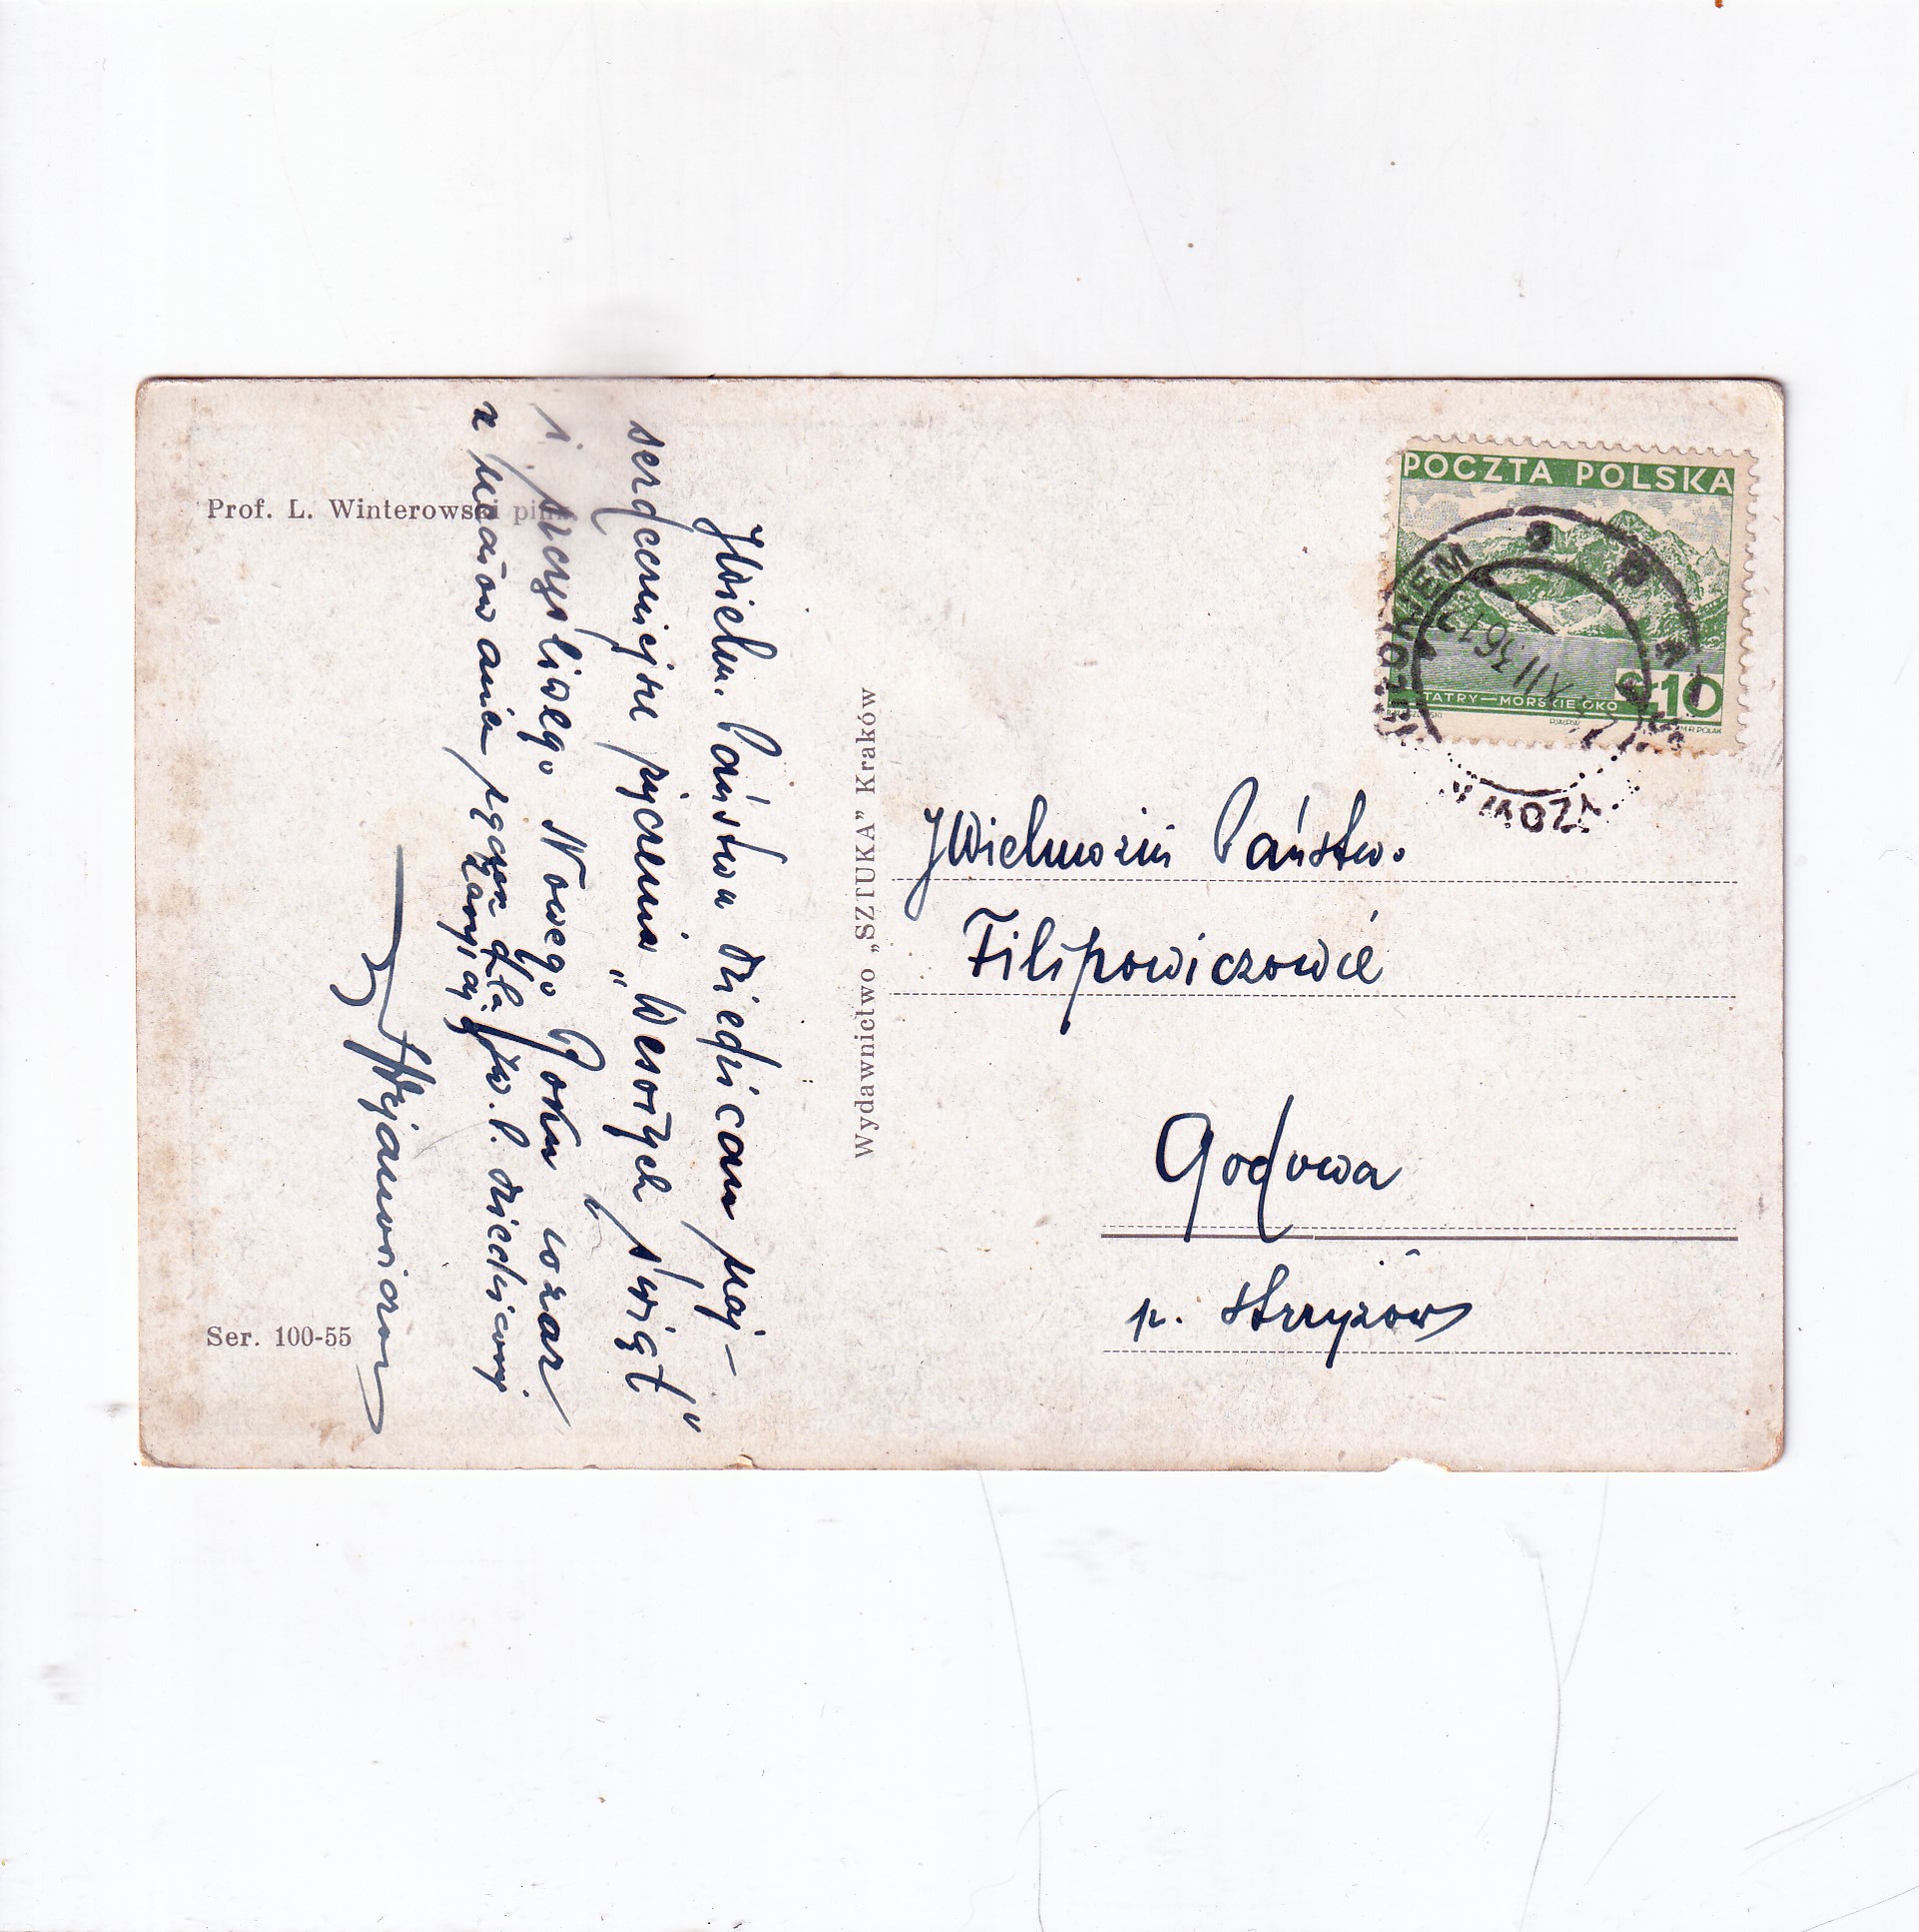 Prof. L. Winterowski pinx.
JWielm. Państwu Dziedzicom naj-
serdeczniejsze życzenia „Wesołych Świąt"
i szczęśliwego Nowego Roku" wraz
z uszanowaniem dla JW. P. Dziedziców
Ser. 100-55
Wydawnictwo „SZTUKA" Kraków
POCZTA POLSKA
TATRY—MORSKIE OKO
10
XII 36 12
JWielmożni Państwo
Filipowiczowie
Godowa
p. Strzyżów